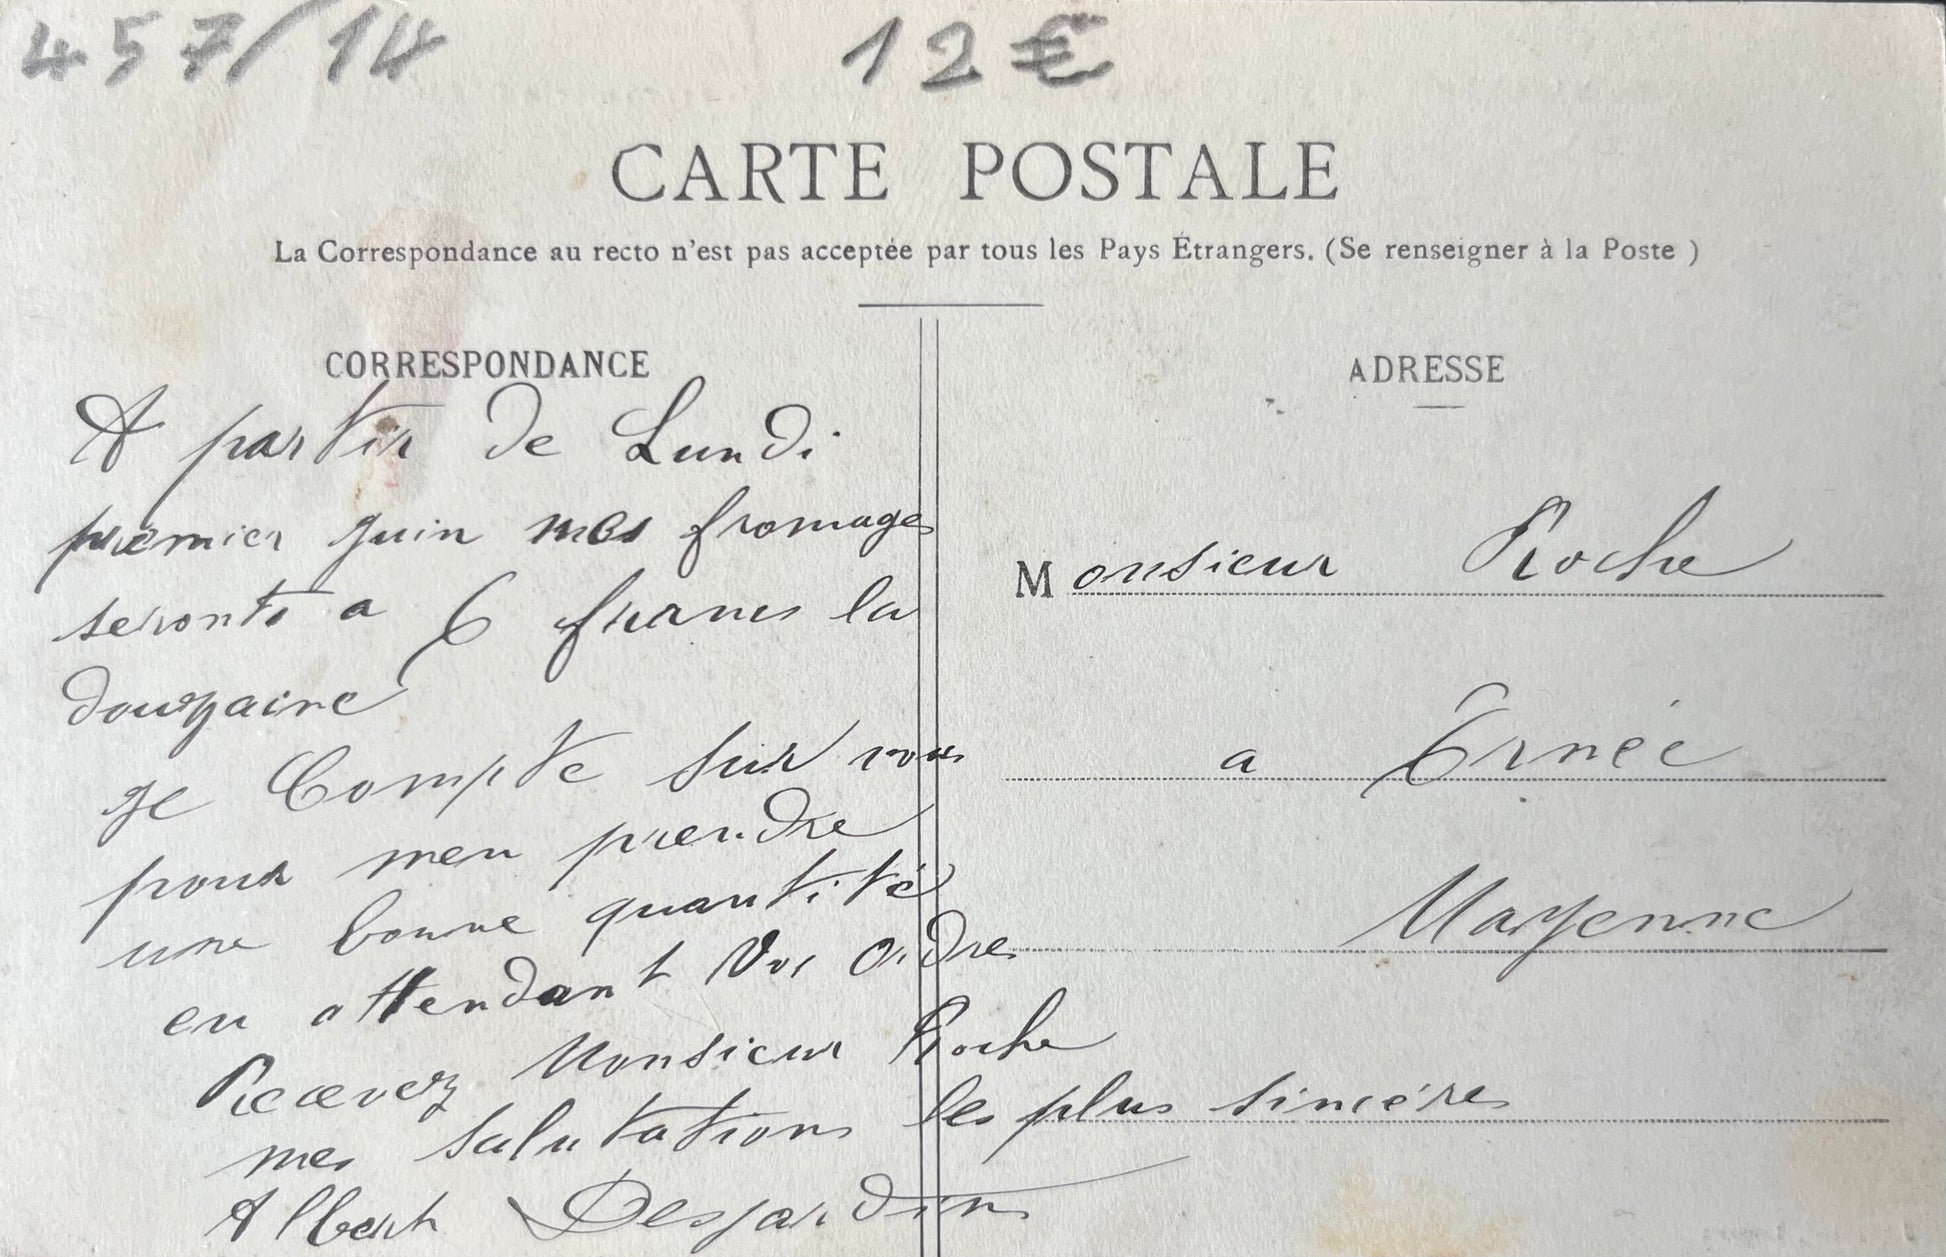 457/14
12€
CARTE POSTALE
La Correspondance au recto n'est pas acceptée par tous les Pays Étrangers. (Se renseigner à la Poste )
CORRESPONDANCE
A partir de Lundi
premier juin mes fromages
seronts a 6 francs la
douzaine
je Compte sur vous
pour men prendre
une bonne quantité
en attendant Vos ordres
Recevez Monsieur Roche
mes salutations les plus sincéres
Albert Desjardins
ADRESSE
Monsieur Roche
a Ernée
Mayenne